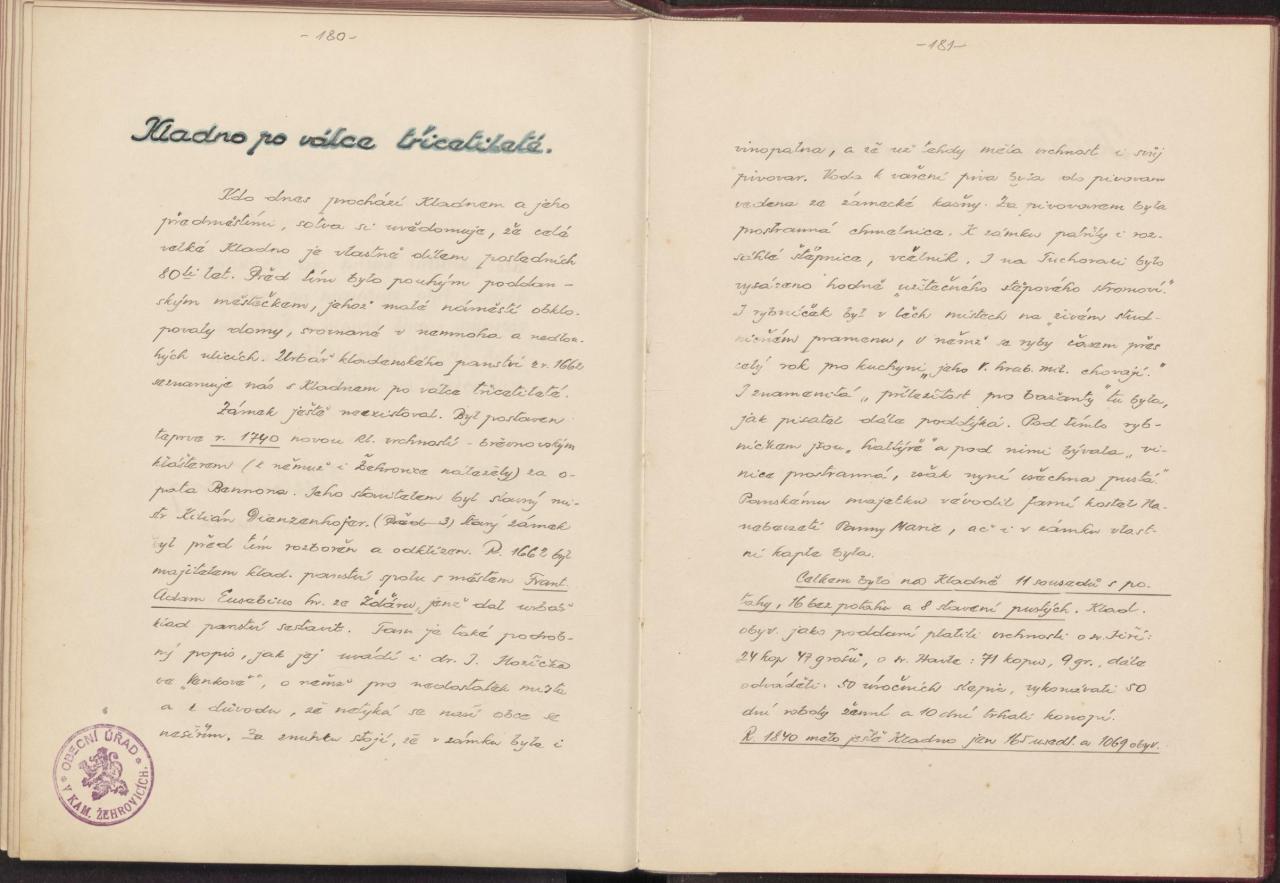 -180-
Kladno po válce třicetileté.
Kdo dnes prochází Kladnem a jeho
předměstími, sotva si uvědomuje, že celé
velké Kladno je vlastně dílem posledních
80ti let. Před tím bylo pouhým poddan-
ským městečkem, jehož malé náměstí obklo-
povaly domy, srovnané v nemnoha a nedlou-
hých ulicích. Urbář kladenského panství z r. 1662
seznamuje nás s Kladnem po válce třicetileté.
Zámek ještě neexistoval. Byl postaven
teprve r. 1740 novou kl. vrchností - břevnovským
klášterem (k němuž i Žehrovice náležely) za o-
pata Bennona. Jeho stavitelem byl slavný mi-
str Kilián Dienzenhofer. (Před 3) starý zámek
byl před tím rozbořen a odklizen. R. 1662 byl
majitelem klad. panství spolu s městem Frant.
Adam Eusebius hr. ze Žďáru, jenž dal urbář
klad panství sestavit. Tam je také podrob-
ný popis, jak jej uvádí i dr. J. Hořička
ve „Venkově", o němž pro nedostatek místa
a z důvodu, že netýká se naší obce se
nešířím. Za zmínku stojí, že v zámku byla i
OBECNÍ ÚŘAD
V KAM. ŽEHROVICÍCH.
-181-
vinopalna, a že už tehdy měla vrchnost i svůj
pivovar. Voda k vaření piva byla do pivovaru
vedena ze zámecké kašny. Za pivovarem byla
prostranná chmelnice. K zámku patřily i roz-
sáhlé štěpnice, včelník. I na Tuchorazi bylo
vysázeno hodně „užitečného štěpového stromoví."
I rybníček byl v těch místech na „živém stud-
ničném pramenu, v němž se ryby časem přes
celý rok pro kuchyni „jeho V. hrab. mil. chovají."
I znamenitá „příležitost pro bažanty" tu byla,
jak pisatel dále podotýká. Pod tímto ryb-
níčkem jsou „haltýře" a pod nimi bývala „vi-
nice prostranná, však nyní všechna pustá."
Panskému majetku vévodil farní kostel Na-
nebevzetí Panny Marie, ač i v zámku vlast-
ní kaple byla.
Celkem bylo na Kladně 11 sousedů s po-
tahy, 16 bez potahu a 8 stavení pustých. Klad.
obyv. jako poddaní platili vrchnosti o sv. Jiří:
24 kop 47 grošů, o sv. Havle: 71 kopu, 9 gr., dále
odváděli: 50 úročních slepic, vykonávali 50
dní roboty ženní a 10 dní trhali konopí.
R. 1840 mělo ještě Kladno jen 165 usedl. a 1069 obyv.